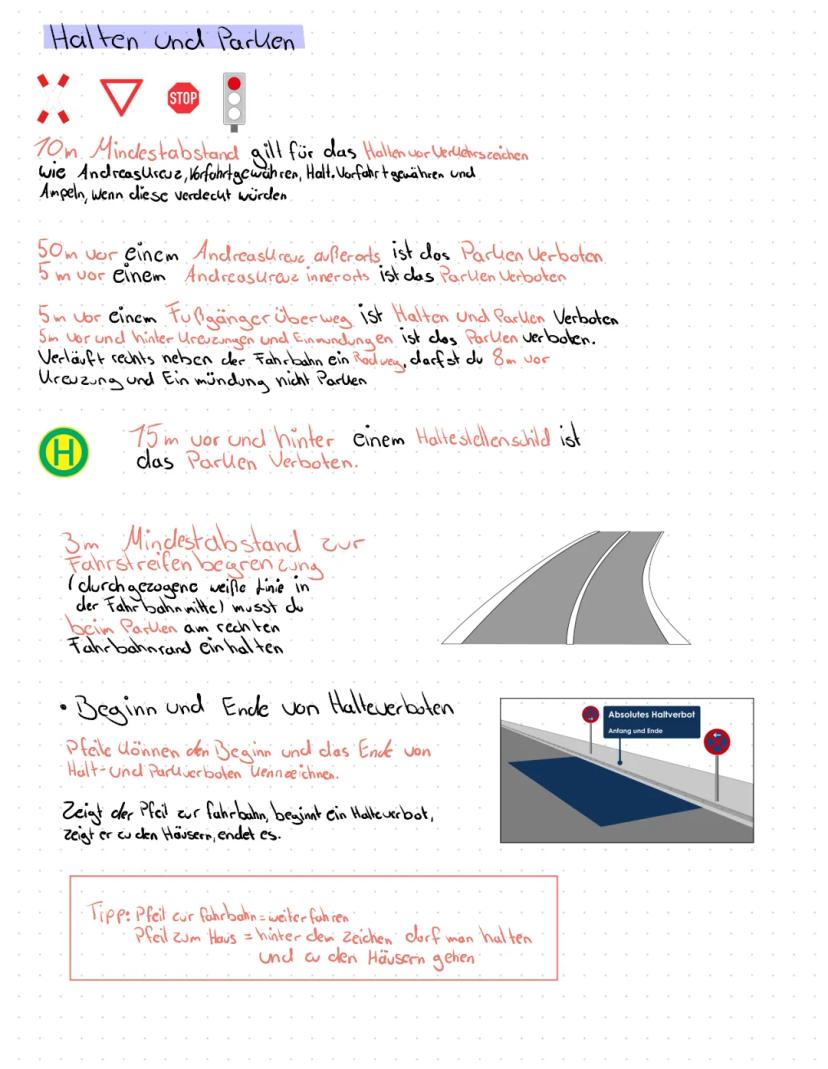 Halten und Parken
STOP
10m Mindestabstand gilt für das Halten vor Verkehrszeichen
wie Andreaskreuz, Vorfahrt gewähren, Halt. Vorfahrt gewähren und
Ampeln, wenn diese verdeckt würden
50m vor einem Andreaskreuz außerorts ist das Parken Verboten
5m vor einem Andreaskreuz innerorts ist das Parken Verboten
5m vor einem Fußgänger Überweg ist Halten und Parken Verboten
5m vor und hinter Kreuzungen und Einmündungen ist das Parken verboten.
Verläuft rechts neben der Fahrbahn ein Radweg, darfst du 8m vor
Kreuzung und Einmündung nicht Parken
H
15m vor und hinter einem Haltestellenschild ist
das Parken Verboten.
3m Mindestabstand zur
Fahrstreifenbegrenzung
(durchgezogene weiße Linie in
der Fahrbahnmitte) musst du
beim Parken am rechten
Fahrbahnrand einhalten
• Beginn und Ende von Halteverboten
Absolutes Haltverbot
Anfang und Ende
Pfeile können den Beginn und das Ende von
Halt- und Parkverboten kennzeichnen.
Zeigt der Pfeil zur fahrbahn, beginnt ein Halteverbot,
zeigt er zu den Häusern, endet es.
Tipp: Pfeil zur fahrbahn = weiter fahren
Pfeil zum Haus = hinter dem Zeichen darf man halten
und zu den Häusern gehen